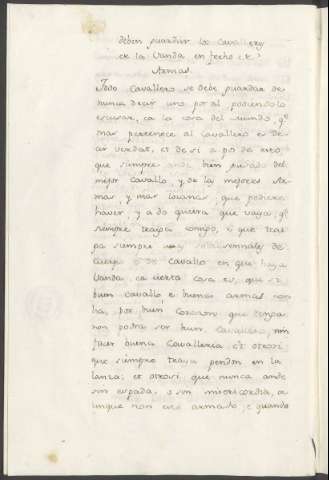 deben guardar los Cavalleros
de la Vanda en fecho de
Armas.
Todo Cavallero se debe guardar de
nunca decir uno por al podiendolo
escusar, ca la cosa del mundo, qe
mas pertenece al Cavallero es de-
cir verdat, et de si
que siempre ande bien guisado del
mejor Cavallo, y de las mejores Ar-
mas, y mas lozanas, que pudiere
haver, y a do quiera que vaya qe
siempre traiga consigo, e que trai-
ga siempre sobreseñales de
Cuerpo o de Cavallo en que haya
Vanda, ca cierta cosa es, que si
buen cavallo e buenas armas non
ha, por buen Corazon que tenga
non podra ser buen Cavallero, nin
facer buena Cavalleria et otrosi
que siempre traya pendon en la
lanza; et otrosi que nunca ande
sin espada, o sin misericordia, a-
unque non este armado; e quando